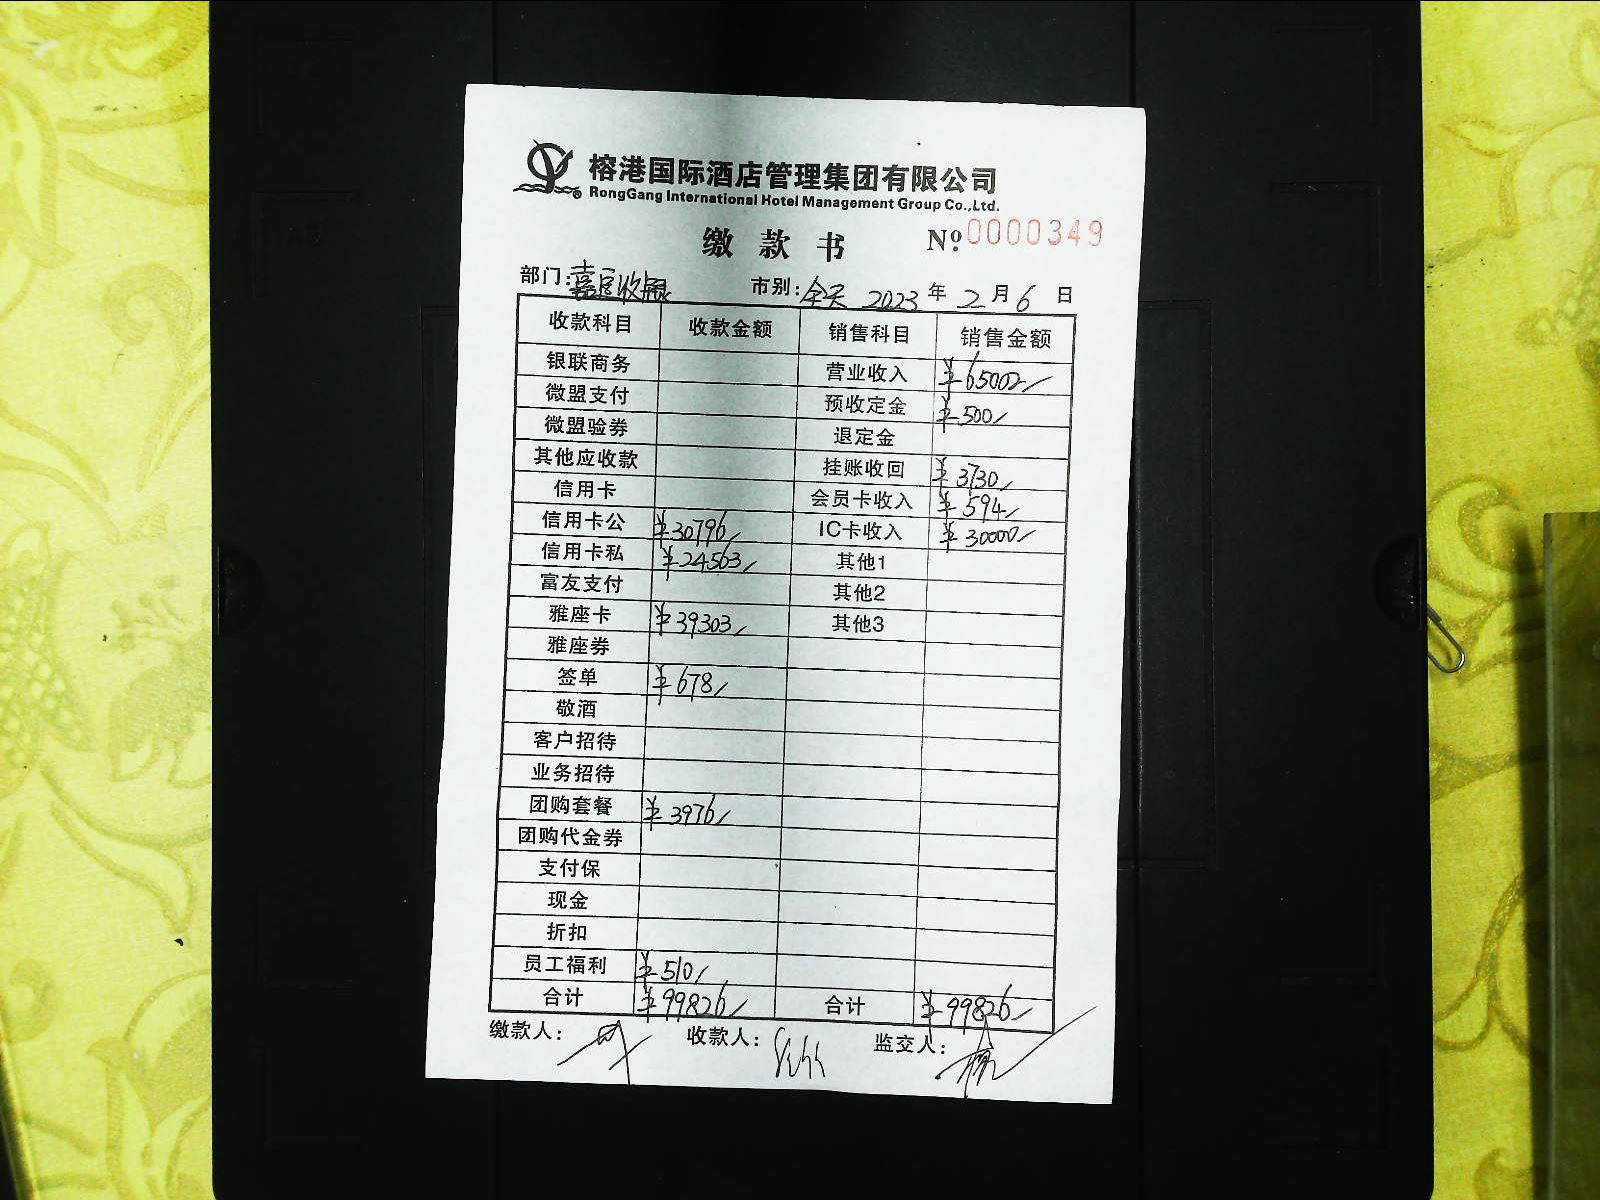 榕港国际酒店管理集团有限公司
RongGang International Hotel Management Group Co.,Ltd.
缴款书 Nº 0000349
部门: 收银 市别: 全天 2023 年 2 月 6 日
收款科目 收款金额 销售科目 销售金额
银联商务 营业收入 ¥65002/
微盟支付 预收定金 ¥500/
微盟验券 退定金
其他应收款 挂账收回 ¥3730/
信用卡 会员卡收入 ¥594/
信用卡公 ¥30796/ IC卡收入 ¥30000/
信用卡私 ¥24563/ 其他1
富友支付 其他2
雅座卡 ¥39303/ 其他3
雅座券
签单 ¥678/
敬酒
客户招待
业务招待
团购套餐 ¥3976/
团购代金券
支付保
现金
折扣
员工福利 ¥510/
合计 ¥99826/ 合计 ¥99826/
缴款人: 收款人: 监交人: